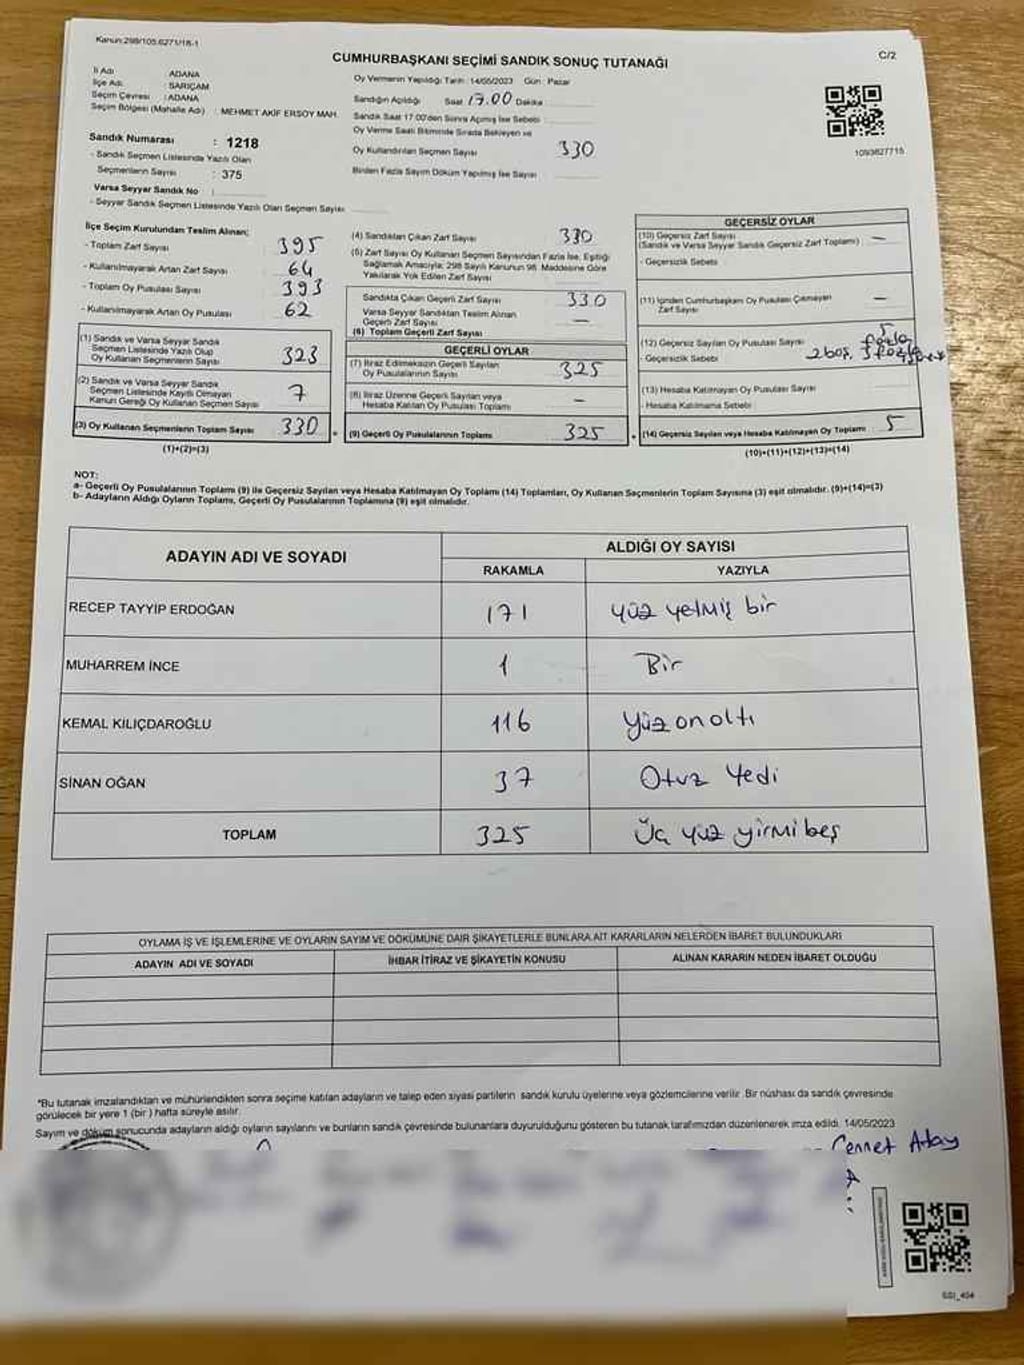 Kanun:298/105,6271/18-1
C/2
CUMHURBAŞKANI SEÇİMİ SANDIK SONUÇ TUTANAĞI
İl Adı : ADANA
İlçe Adı : SARIÇAM
Seçim Çevresi : ADANA
Seçim Bölgesi (Mahalle Adı) : MEHMET AKİF ERSOY MAH.
Sandık Numarası : 1218
- Sandık Seçmen Listesinde Yazılı Olan
Seçmenlerin Sayısı : 375
Varsa Seyyar Sandık No :
- Seyyar Sandık Seçmen Listesinde Yazılı Olan Seçmen Sayısı
Oy Vermenin Yapıldığı Tarih : 14/05/2023 Gün : Pazar
Sandığın Açıldığı Saat 17.00 Dakika
Sandık Saat 17:00'den Sonra Açılmış İse Sebebi
Oy Verme Saati Bitiminde Sırada Bekleyen ve
Oy Kullandırılan Seçmen Sayısı 330
Birden Fazla Sayım Döküm Yapılmış İse Sayısı
1093827715
İlçe Seçim Kurulundan Teslim Alınan;
- Toplam Zarf Sayısı 395
- Kullanılmayarak Artan Zarf Sayısı 64
- Toplam Oy Pusulası Sayısı 393
- Kullanılmayarak Artan Oy Pusulası 62
(1) Sandık ve Varsa Seyyar Sandık
Seçmen Listesinde Yazılı Olup
Oy Kullanan Seçmenlerin Sayısı 323
(2) Sandık ve Varsa Seyyar Sandık
Seçmen Listesinde Kayıtlı Olmayan
Kanun Gereği Oy Kullanan Seçmen Sayısı 7
(3) Oy Kullanan Seçmenlerin Toplam Sayısı 330
(1)+(2)=(3)
(4) Sandıktan Çıkan Zarf Sayısı 330
(5) Zarf Sayısı Oy Kullanan Seçmen Sayısından Fazla İse, Eşitliği
Sağlamak Amacıyla; 298 Sayılı Kanunun 98. Maddesine Göre
Yakılarak Yok Edilen Zarf Sayısı
Sandıkta Çıkan Geçerli Zarf Sayısı 330
Varsa Seyyar Sandıktan Teslim Alınan
Geçerli Zarf Sayısı —
(6) Toplam Geçerli Zarf Sayısı
GEÇERLİ OYLAR
(7) İtiraz Edilmeksizin Geçerli Sayılan
Oy Pusulalarının Sayısı 325
(8) İtiraz Üzerine Geçerli Sayılan veya
Hesaba Katılan Oy Pusulası Toplamı —
(9) Geçerli Oy Pusulalarının Toplamı 325
GEÇERSİZ OYLAR
(10) Geçersiz Zarf Sayısı —
(Sandık ve Varsa Seyyar Sandık Geçersiz Zarf Toplamı)
- Geçersizlik Sebebi
(11) İçinden Cumhurbaşkanı Oy Pusulası Çıkmayan —
Zarf Sayısı
(12) Geçersiz Sayılan Oy Pusulası Sayısı 5
- Geçersizlik Sebebi 2 boş, 3 fazla
(13) Hesaba Katılmayan Oy Pusulası Sayısı
- Hesaba Katılmama Sebebi
(14) Geçersiz Sayılan veya Hesaba Katılmayan Oy Toplamı 5
(10)+(11)+(12)+(13)=(14)
NOT:
a- Geçerli Oy Pusulalarının Toplamı (9) ile Geçersiz Sayılan veya Hesaba Katılmayan Oy Toplamı (14) Toplamları, Oy Kullanan Seçmenlerin Toplam Sayısına (3) eşit olmalıdır. (9)+(14)=(3)
b- Adayların Aldığı Oyların Toplamı, Geçerli Oy Pusulalarının Toplamına (9) eşit olmalıdır.
ADAYIN ADI VE SOYADI
ALDIĞI OY SAYISI
RAKAMLA YAZIYLA
RECEP TAYYİP ERDOĞAN 171 yüz yetmiş bir
MUHARREM İNCE 1 Bir
KEMAL KILIÇDAROĞLU 116 yüz on altı
SİNAN OĞAN 37 Otuz Yedi
TOPLAM 325 Üç yüz yirmi beş
OYLAMA İŞ VE İŞLEMLERİNE VE OYLARIN SAYIM VE DÖKÜMÜNE DAİR ŞİKAYETLERLE BUNLARA AİT KARARLARIN NELERDEN İBARET BULUNDUKLARI
ADAYIN ADI VE SOYADI İHBAR İTİRAZ VE ŞİKAYETİN KONUSU ALINAN KARARIN NEDEN İBARET OLDUĞU
*Bu tutanak imzalandıktan ve mühürlendikten sonra seçime katılan adayların ve talep eden siyasi partilerin sandık kurulu üyelerine veya gözlemcilerine verilir. Bir nüshası da sandık çevresinde
görülecek bir yere 1 (bir) hafta süreyle asılır.
Sayım ve döküm sonucunda adayların aldığı oyların sayılarını ve bunların sandık çevresinde bulunanlara duyurulduğunu gösteren bu tutanak tarafımızdan düzenlenerek imza edildi. 14/05/2023
Cennet Atay